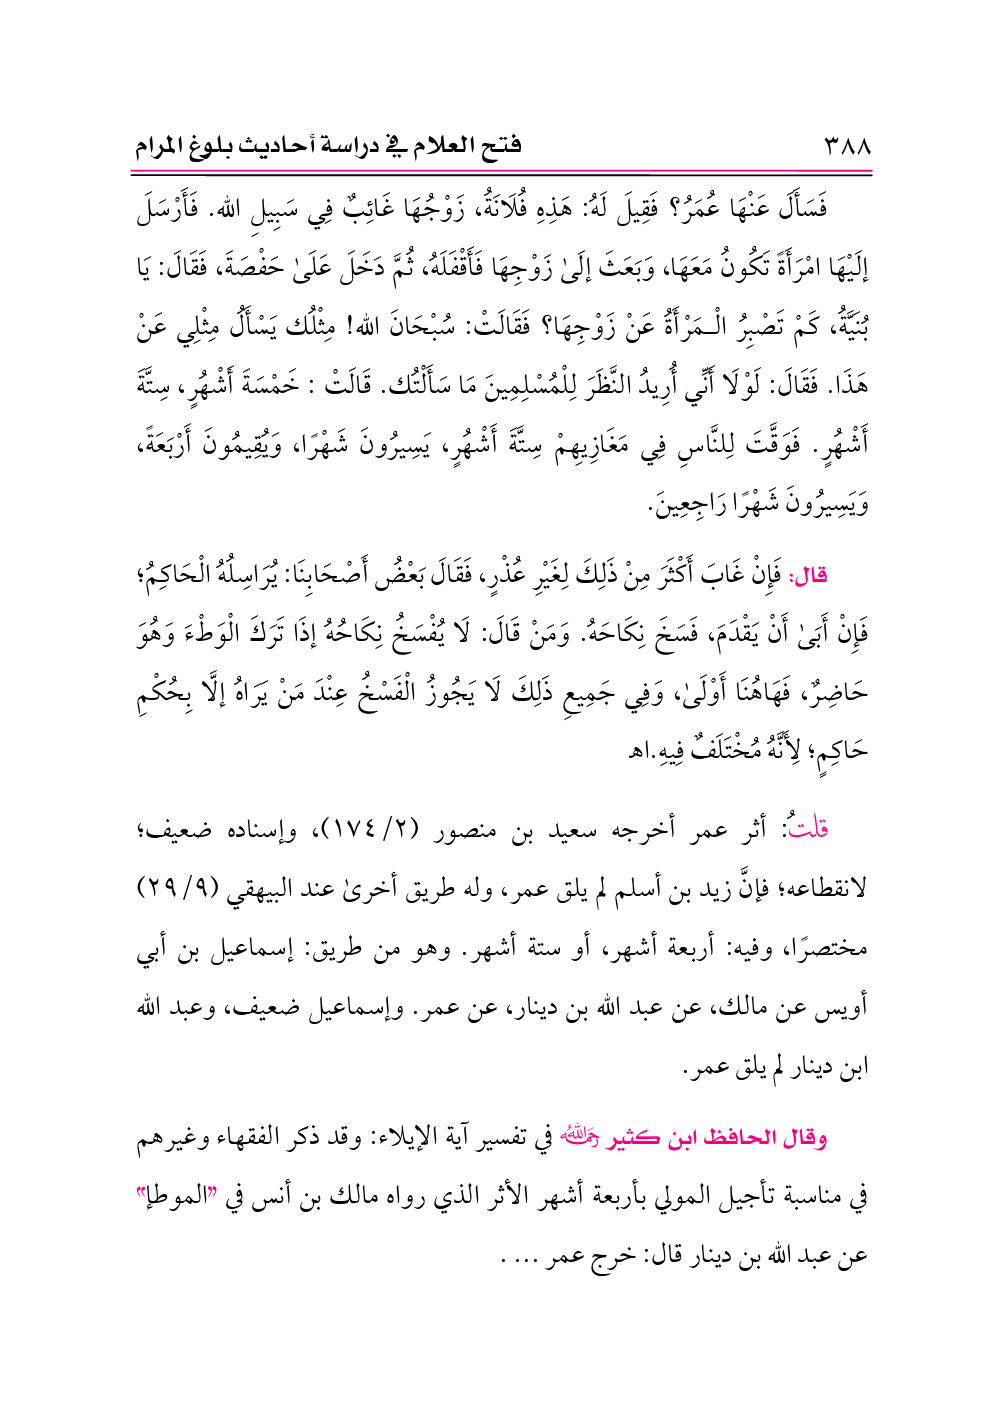 ٣٨٨ فتح العلام في دراسة أحاديث بلوغ المرام
فَسَأَلَ عَنْهَا عُمَرُ؟ فَقِيلَ لَهُ: هَذِهِ فُلَانَةُ، زَوْجُهَا غَائِبٌ فِي سَبِيلِ الله. فَأَرْسَلَ
إلَيْهَا امْرَأَةً تَكُونُ مَعَهَا، وَبَعَثَ إلَىٰ زَوْجِهَا فَأَقْفَلَهُ، ثُمَّ دَخَلَ عَلَىٰ حَفْصَةَ، فَقَالَ: يَا
بُنَيَّةُ، كَمْ تَصْبِرُ الْـمَرْأَةُ عَنْ زَوْجِهَا؟ فَقَالَتْ: سُبْحَانَ الله! مِثْلُك يَسْأَلُ مِثْلِي عَنْ
هَذَا. فَقَالَ: لَوْلَا أَنِّي أُرِيدُ النَّظَرَ لِلْمُسْلِمِينَ مَا سَأَلْتُك. قَالَتْ : خَمْسَةَ أَشْهُرٍ، سِتَّةَ
أَشْهُرٍ. فَوَقَّتَ لِلنَّاسِ فِي مَغَازِيهِمْ سِتَّةَ أَشْهُرٍ، يَسِيرُونَ شَهْرًا، وَيُقِيمُونَ أَرْبَعَةً،
وَيَسِيرُونَ شَهْرًا رَاجِعِينَ.
قال: فَإِنْ غَابَ أَكْثَرَ مِنْ ذَلِكَ لِغَيْرِ عُذْرٍ، فَقَالَ بَعْضُ أَصْحَابِنَا: يُرَاسِلُهُ الْحَاكِمُ؛
فَإِنْ أَبَىٰ أَنْ يَقْدَمَ، فَسَخَ نِكَاحَهُ. وَمَنْ قَالَ: لَا يُفْسَخُ نِكَاحُهُ إذَا تَرَكَ الْوَطْءَ وَهُوَ
حَاضِرٌ، فَهَاهُنَا أَوْلَىٰ، وَفِي جَمِيعِ ذَلِكَ لَا يَجُوزُ الْفَسْخُ عِنْدَ مَنْ يَرَاهُ إلَّا بِحُكْمِ
حَاكِمٍ؛ لِأَنَّهُ مُخْتَلَفٌ فِيهِ.اهـ
قلتُ: أثر عمر أخرجه سعيد بن منصور (٢/ ١٧٤)، وإسناده ضعيف؛
لانقطاعه؛ فإنَّ زيد بن أسلم لم يلق عمر، وله طريق أخرىٰ عند البيهقي (٩/ ٢٩)
مختصرًا، وفيه: أربعة أشهر، أو ستة أشهر. وهو من طريق: إسماعيل بن أبي
أويس عن مالك، عن عبد الله بن دينار، عن عمر. وإسماعيل ضعيف، وعبد الله
ابن دينار لم يلق عمر.
وقال الحافظ ابن كثير رحمه الله في تفسير آية الإيلاء: وقد ذكر الفقهاء وغيرهم
في مناسبة تأجيل المولي بأربعة أشهر الأثر الذي رواه مالك بن أنس في "الموطإ"
عن عبد الله بن دينار قال: خرج عمر ... .